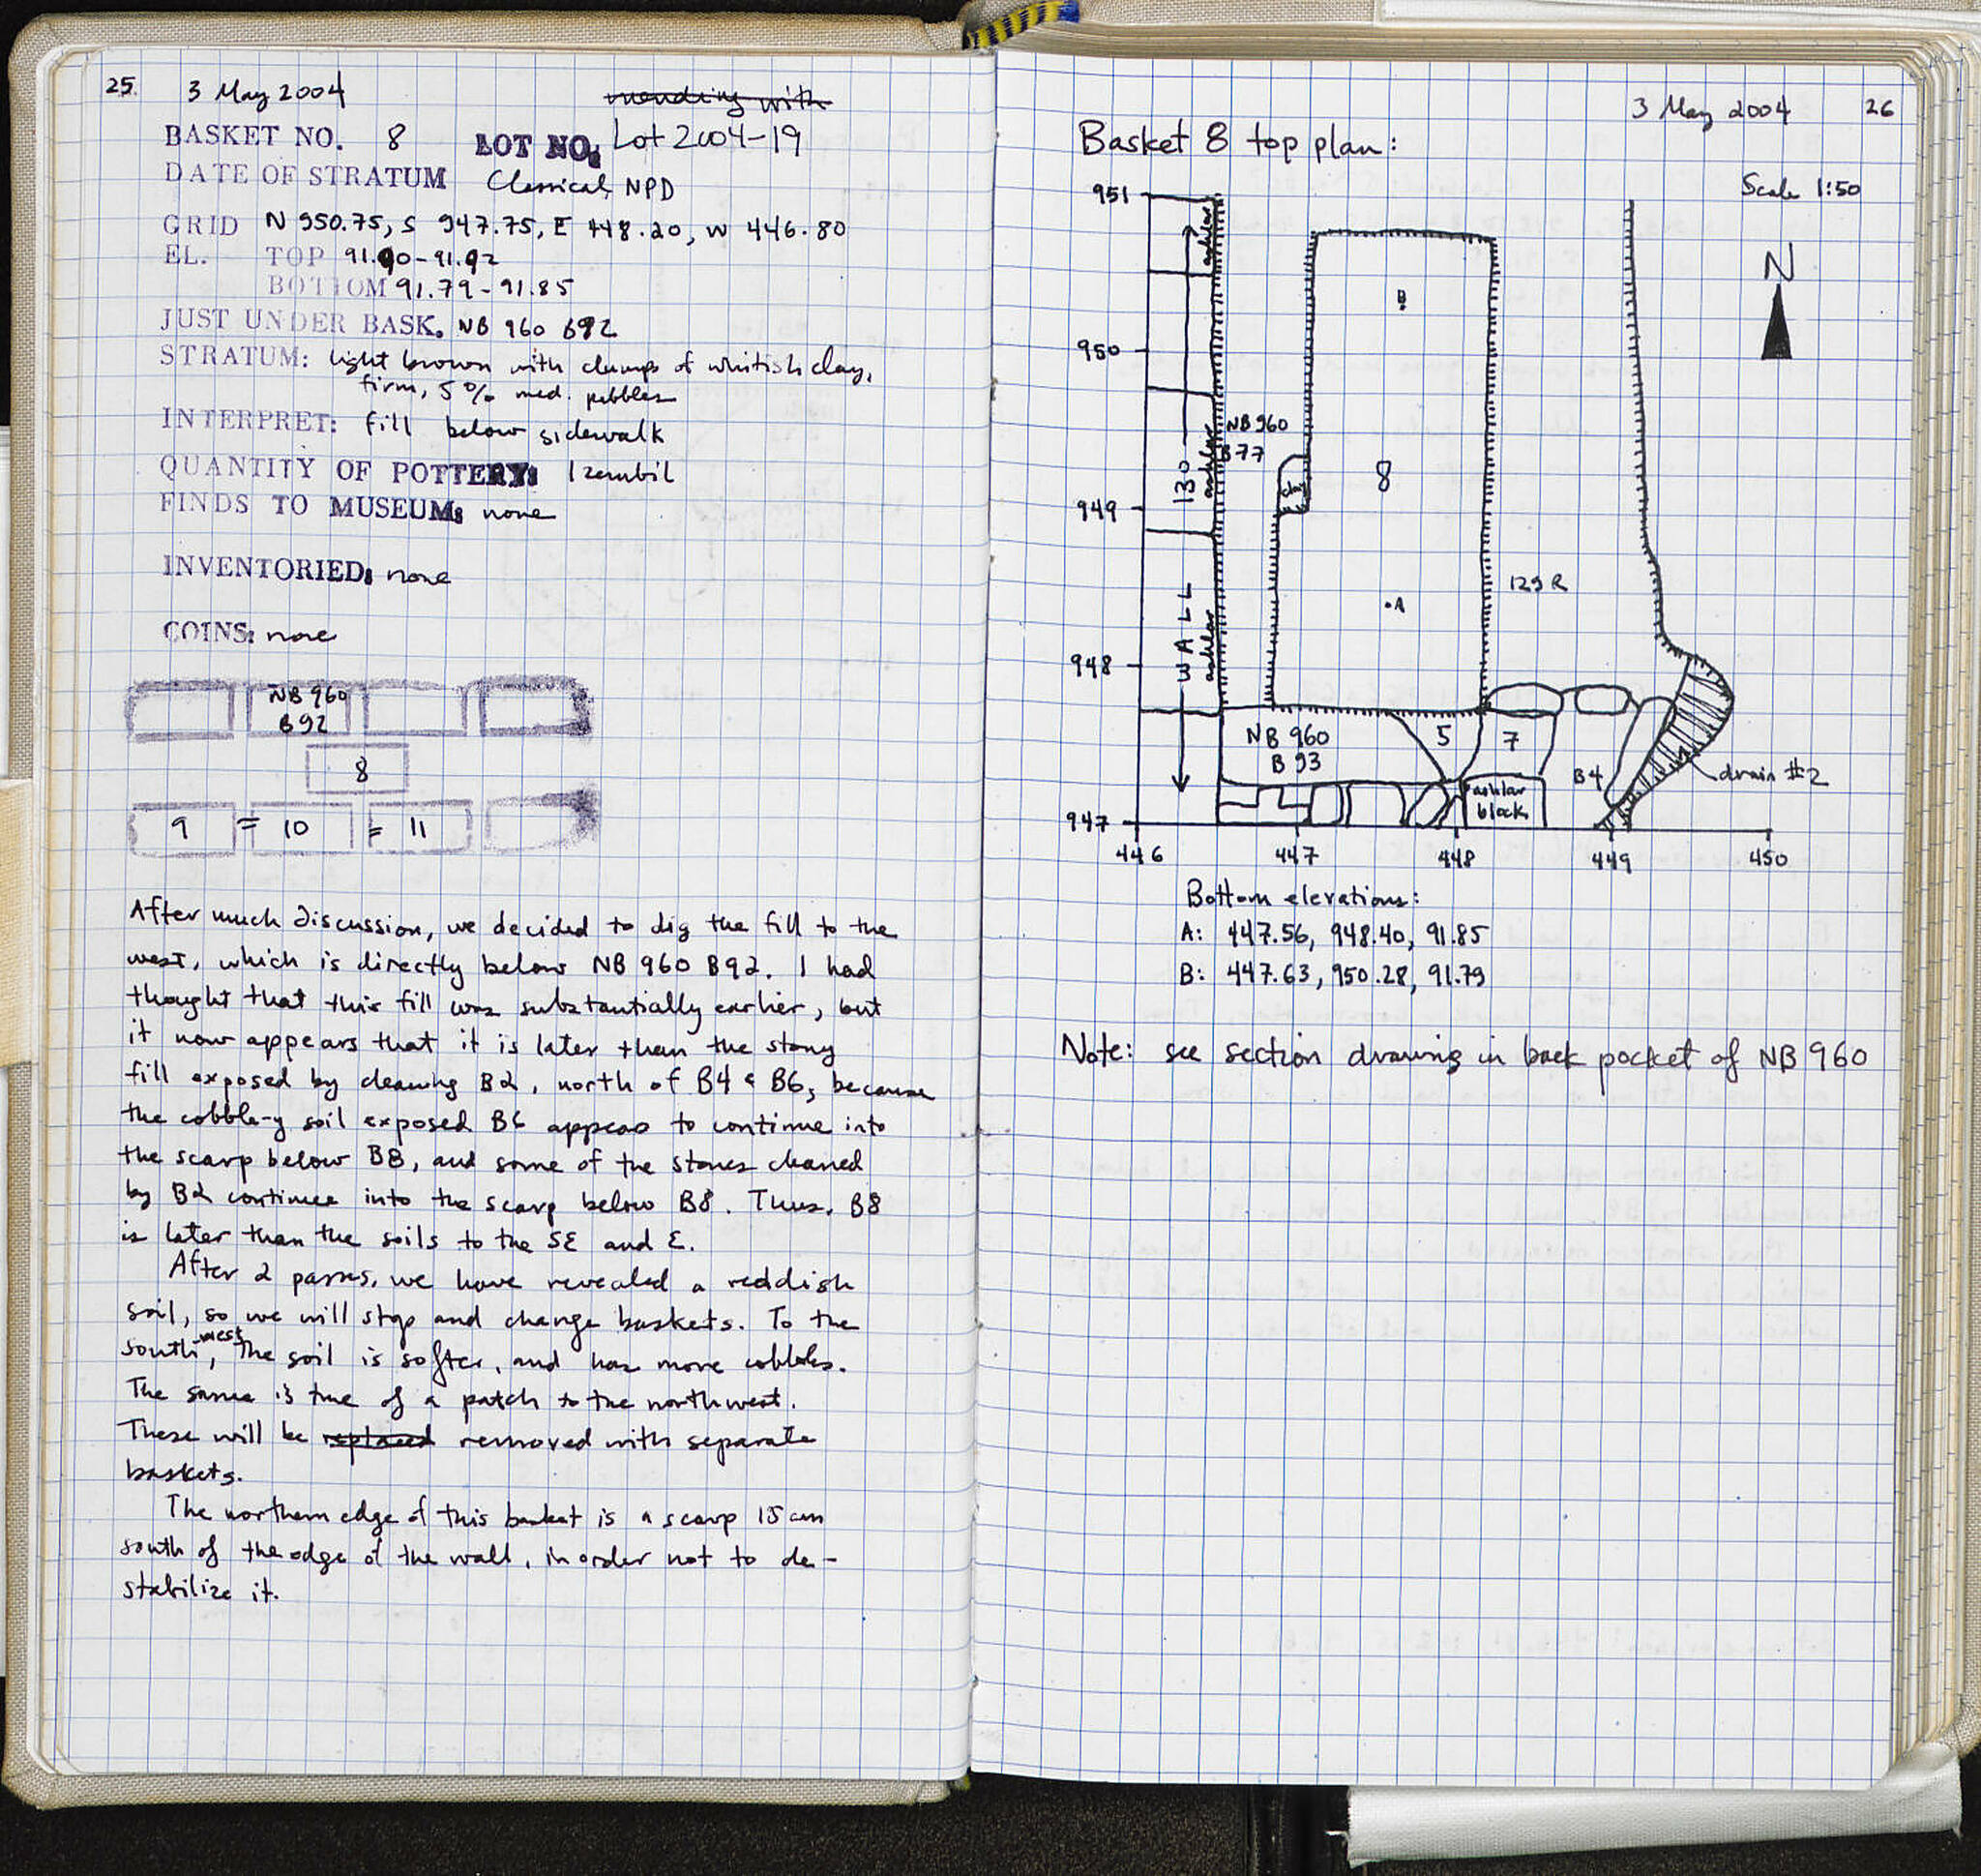 25. 3 May 2004
mending with
BASKET NO. 8 LOT NO. Lot 2004-19
DATE OF STRATUM Classical, NPD
GRID N 950.75, S 947.75, E 448.20, W 446.80
EL. TOP 91.90-91.92
BOTTOM 91.79-91.85
JUST UNDER BASK. NB 960 B92
STRATUM: light brown with clumps of whitish clay,
firm, 5% med. pebbles
INTERPRET: fill below sidewalk
QUANTITY OF POTTERY: 1 zembil
FINDS TO MUSEUM: none
INVENTORIED: none
COINS: none
NB 960
B92
8
9 = 10 = 11
After much discussion, we decided to dig the fill to the
west, which is directly below NB 960 B92. I had
thought that this fill was substantially earlier, but
it now appears that it is later than the stony
fill exposed by cleaning B2, north of B4 & B6, because
the cobble-y soil exposed B6 appears to continue into
the scarp below B8, and some of the stones cleaned
by B2 continue into the scarp below B8. Thus, B8
is later than the soils to the SE and E.
After 2 passes, we have revealed a reddish
soil, so we will stop and change baskets. To the
southwest, the soil is softer, and has more cobbles.
The same is true of a patch to the northwest.
These will be replaced removed with separate
baskets.
The northern edge of this basket is a scarp 15 cm
south of the edge of the wall, in order not to de-
stabilize it.
3 May 2004 26
Basket 8 top plan:
Scale 1:50
951
ashlar
N
B
950
NB 960
B77
ashlar
130
clay
8
949
129 R
A
WALL
ashlar
948
NB 960
B 93
5
7
B4
drain #2
ashlar
block
947
446 447 448 449 450
Bottom elevations:
A: 447.56, 948.40, 91.85
B: 447.63, 950.28, 91.79
Note: see section drawing in back pocket of NB 960